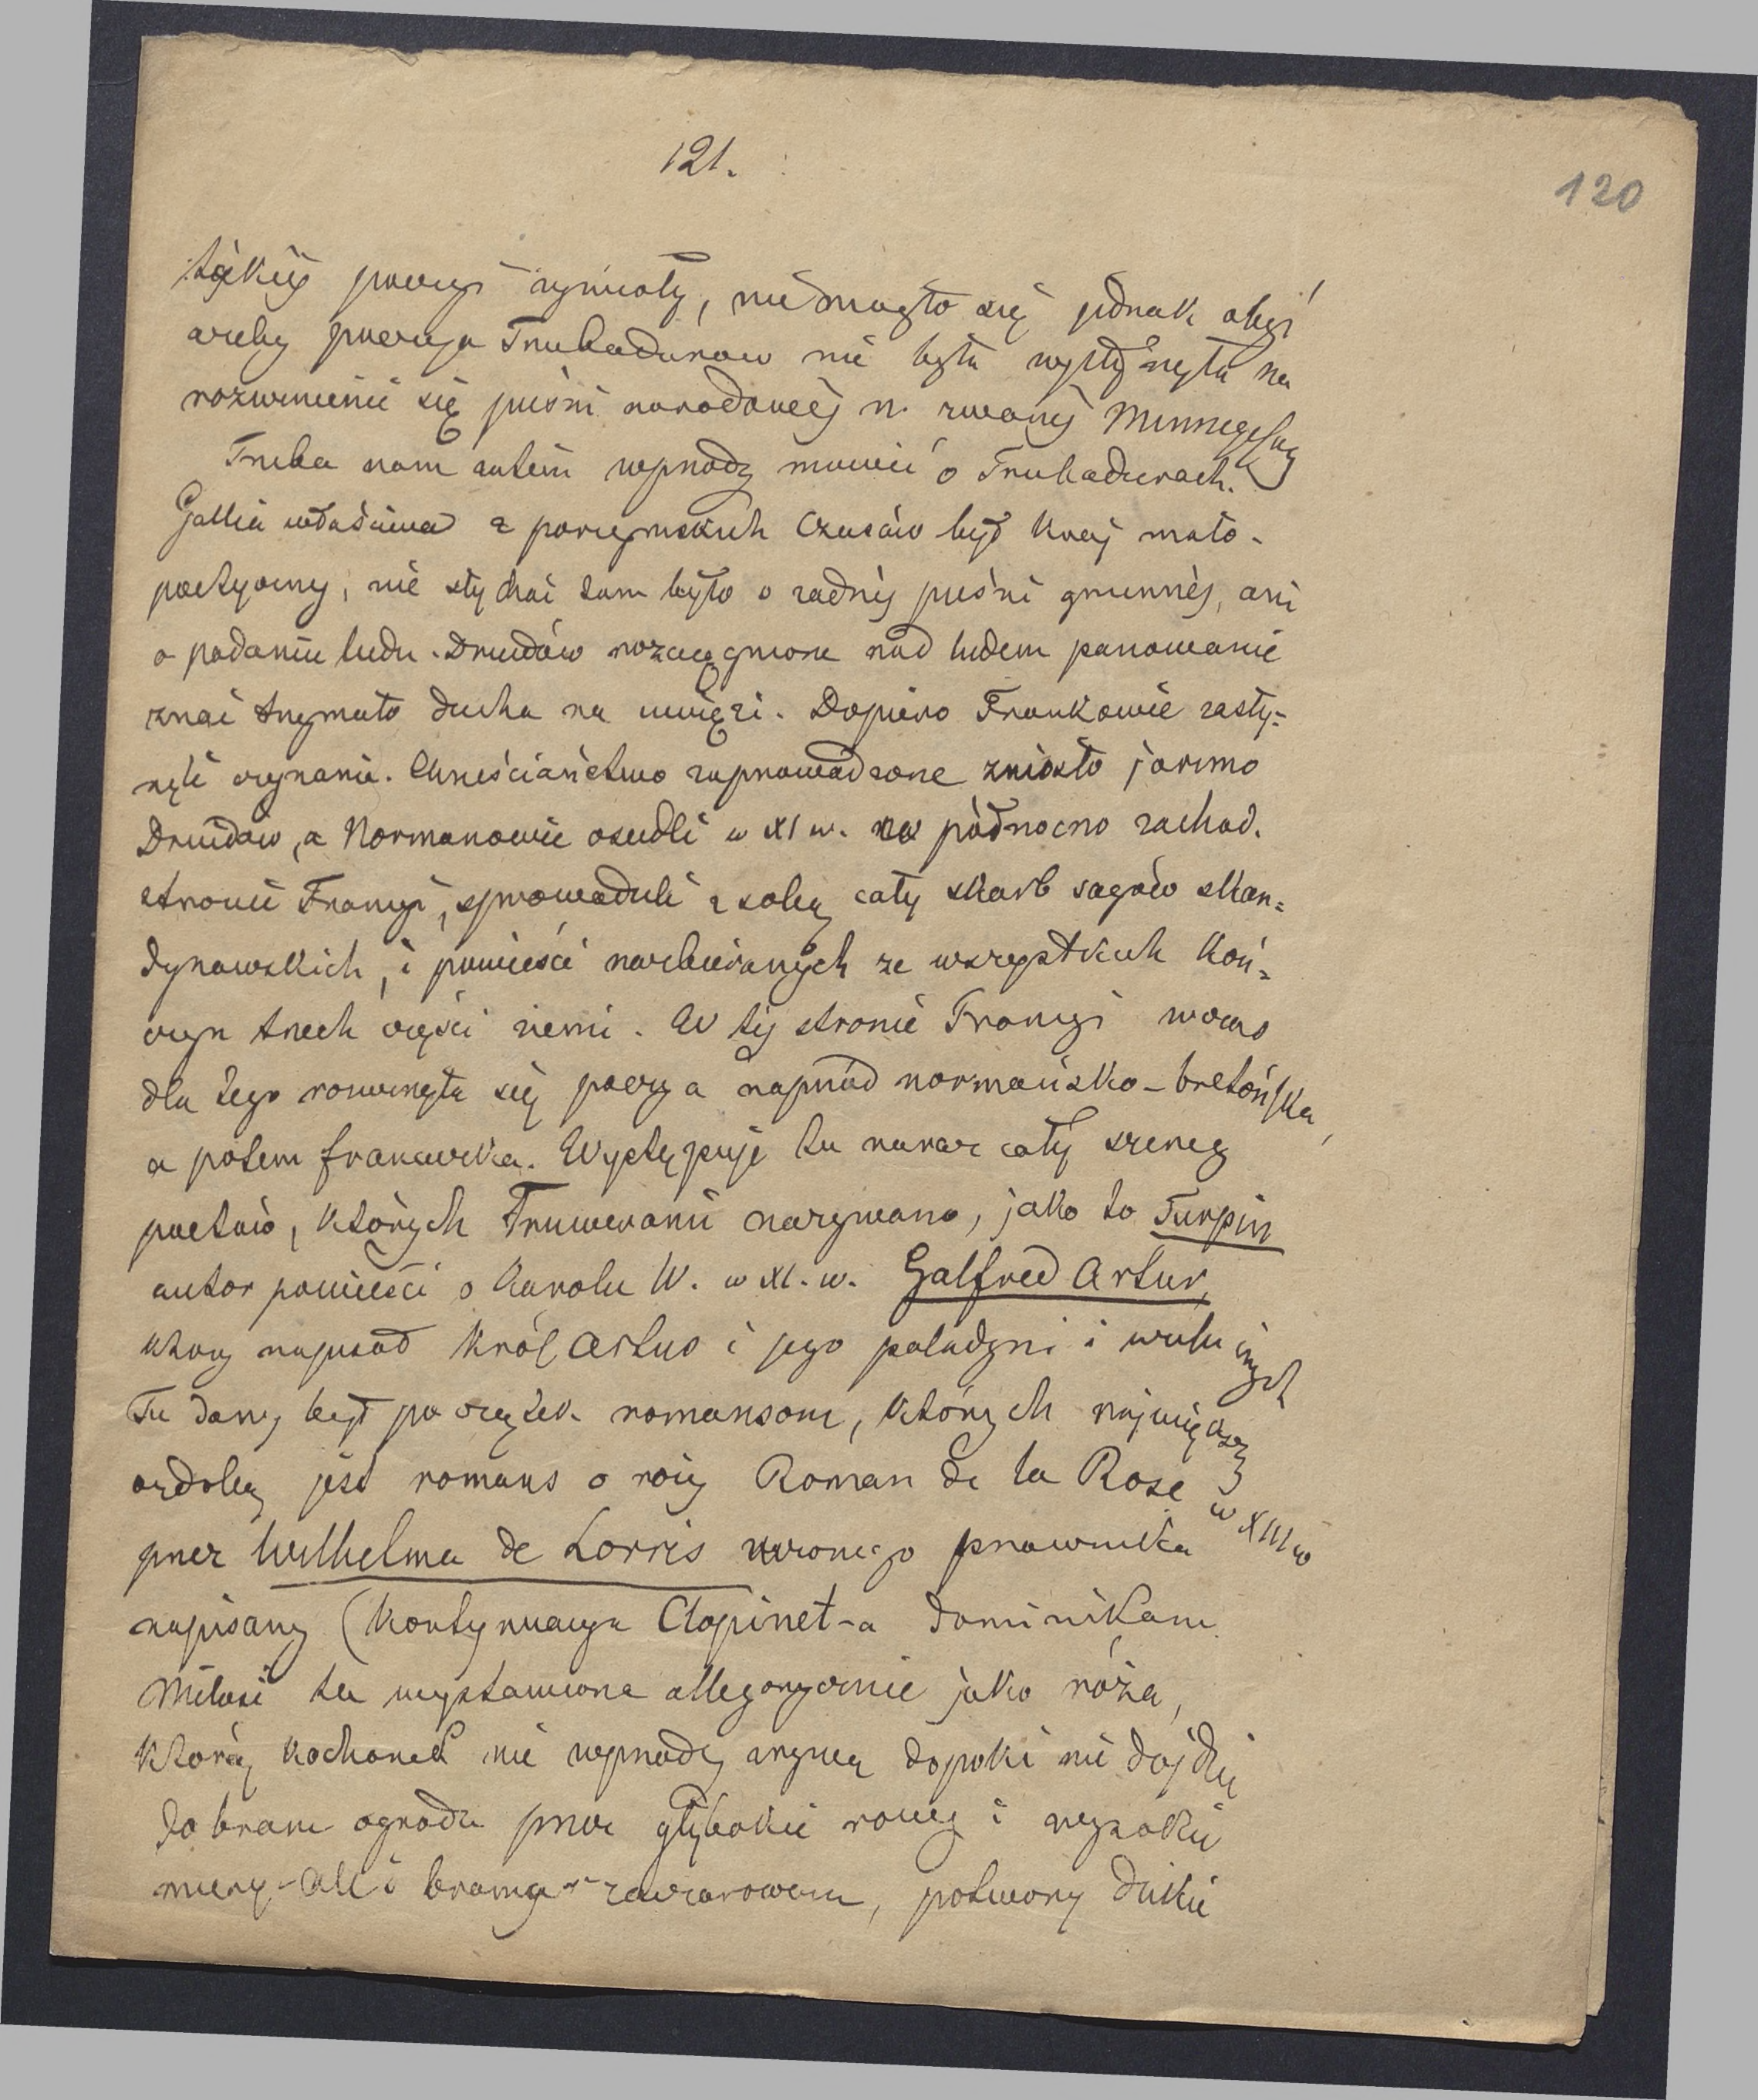 121.
120
takiéj poezyi zymioty, nie mogło się jednak obyć
ażeby poezyja Trubadurow nie była wpłynęła na
rozwinienie się pieśni narodowéj n. zwanéj Minnegesang
Trzeba nam zatém wprzody mowić o Trubadurach.
Gallia właściwa z porzymskich czasów był kraj mało-
poetyczny, nie słychać tam było o żadnéj pieśni gminnéj, ani
o podaniu ludu. Druidów rozciągnione nad ludem panowanie
znać trzymało ducha na uwięzi. Dopiero Frankowie zasły=
nęli czynami. Chrześciaństwo zaprowadzone zniosło jarzmo
Druidow, a Normanowie osiedli w XI w. na północno zachod.
stronie Francyi, sprowadzili z sobą cały skarb sagów skan=
dynawskich, i powieści nazbieranych ze wszystkich koń=
czyn trzech części ziemi. W téj stronie Francyi wczas
dla tego rozwinęła się poezya naprzód normańsko-bretońska,
a potem francuzka. Występuje tu naraz cały szereg
poetów, których Truwerami nazywano, jako to Turpin
autor powieści o Karolu W. w XI. w. Galfred Artur,
ktory napisał Król Artus i jego paladyni i wielu inych
Tu dany był początek romansom, których największą
ozdobą jest romans o róży Roman de la Rose w XIII w
przez Wilhelma de Lorris uczonego prawnika
napisany (kontynuacya Clopinet-a dominikana
Miłość tu wystawiona allegorycznie jako róża,
którą kochanek nie wprzody zrywa dopoki nie dojdzie
do bram ogrodu przez głębokie rowy i wysokie
mury - ale i brama zaczarowana, potwory dzikie